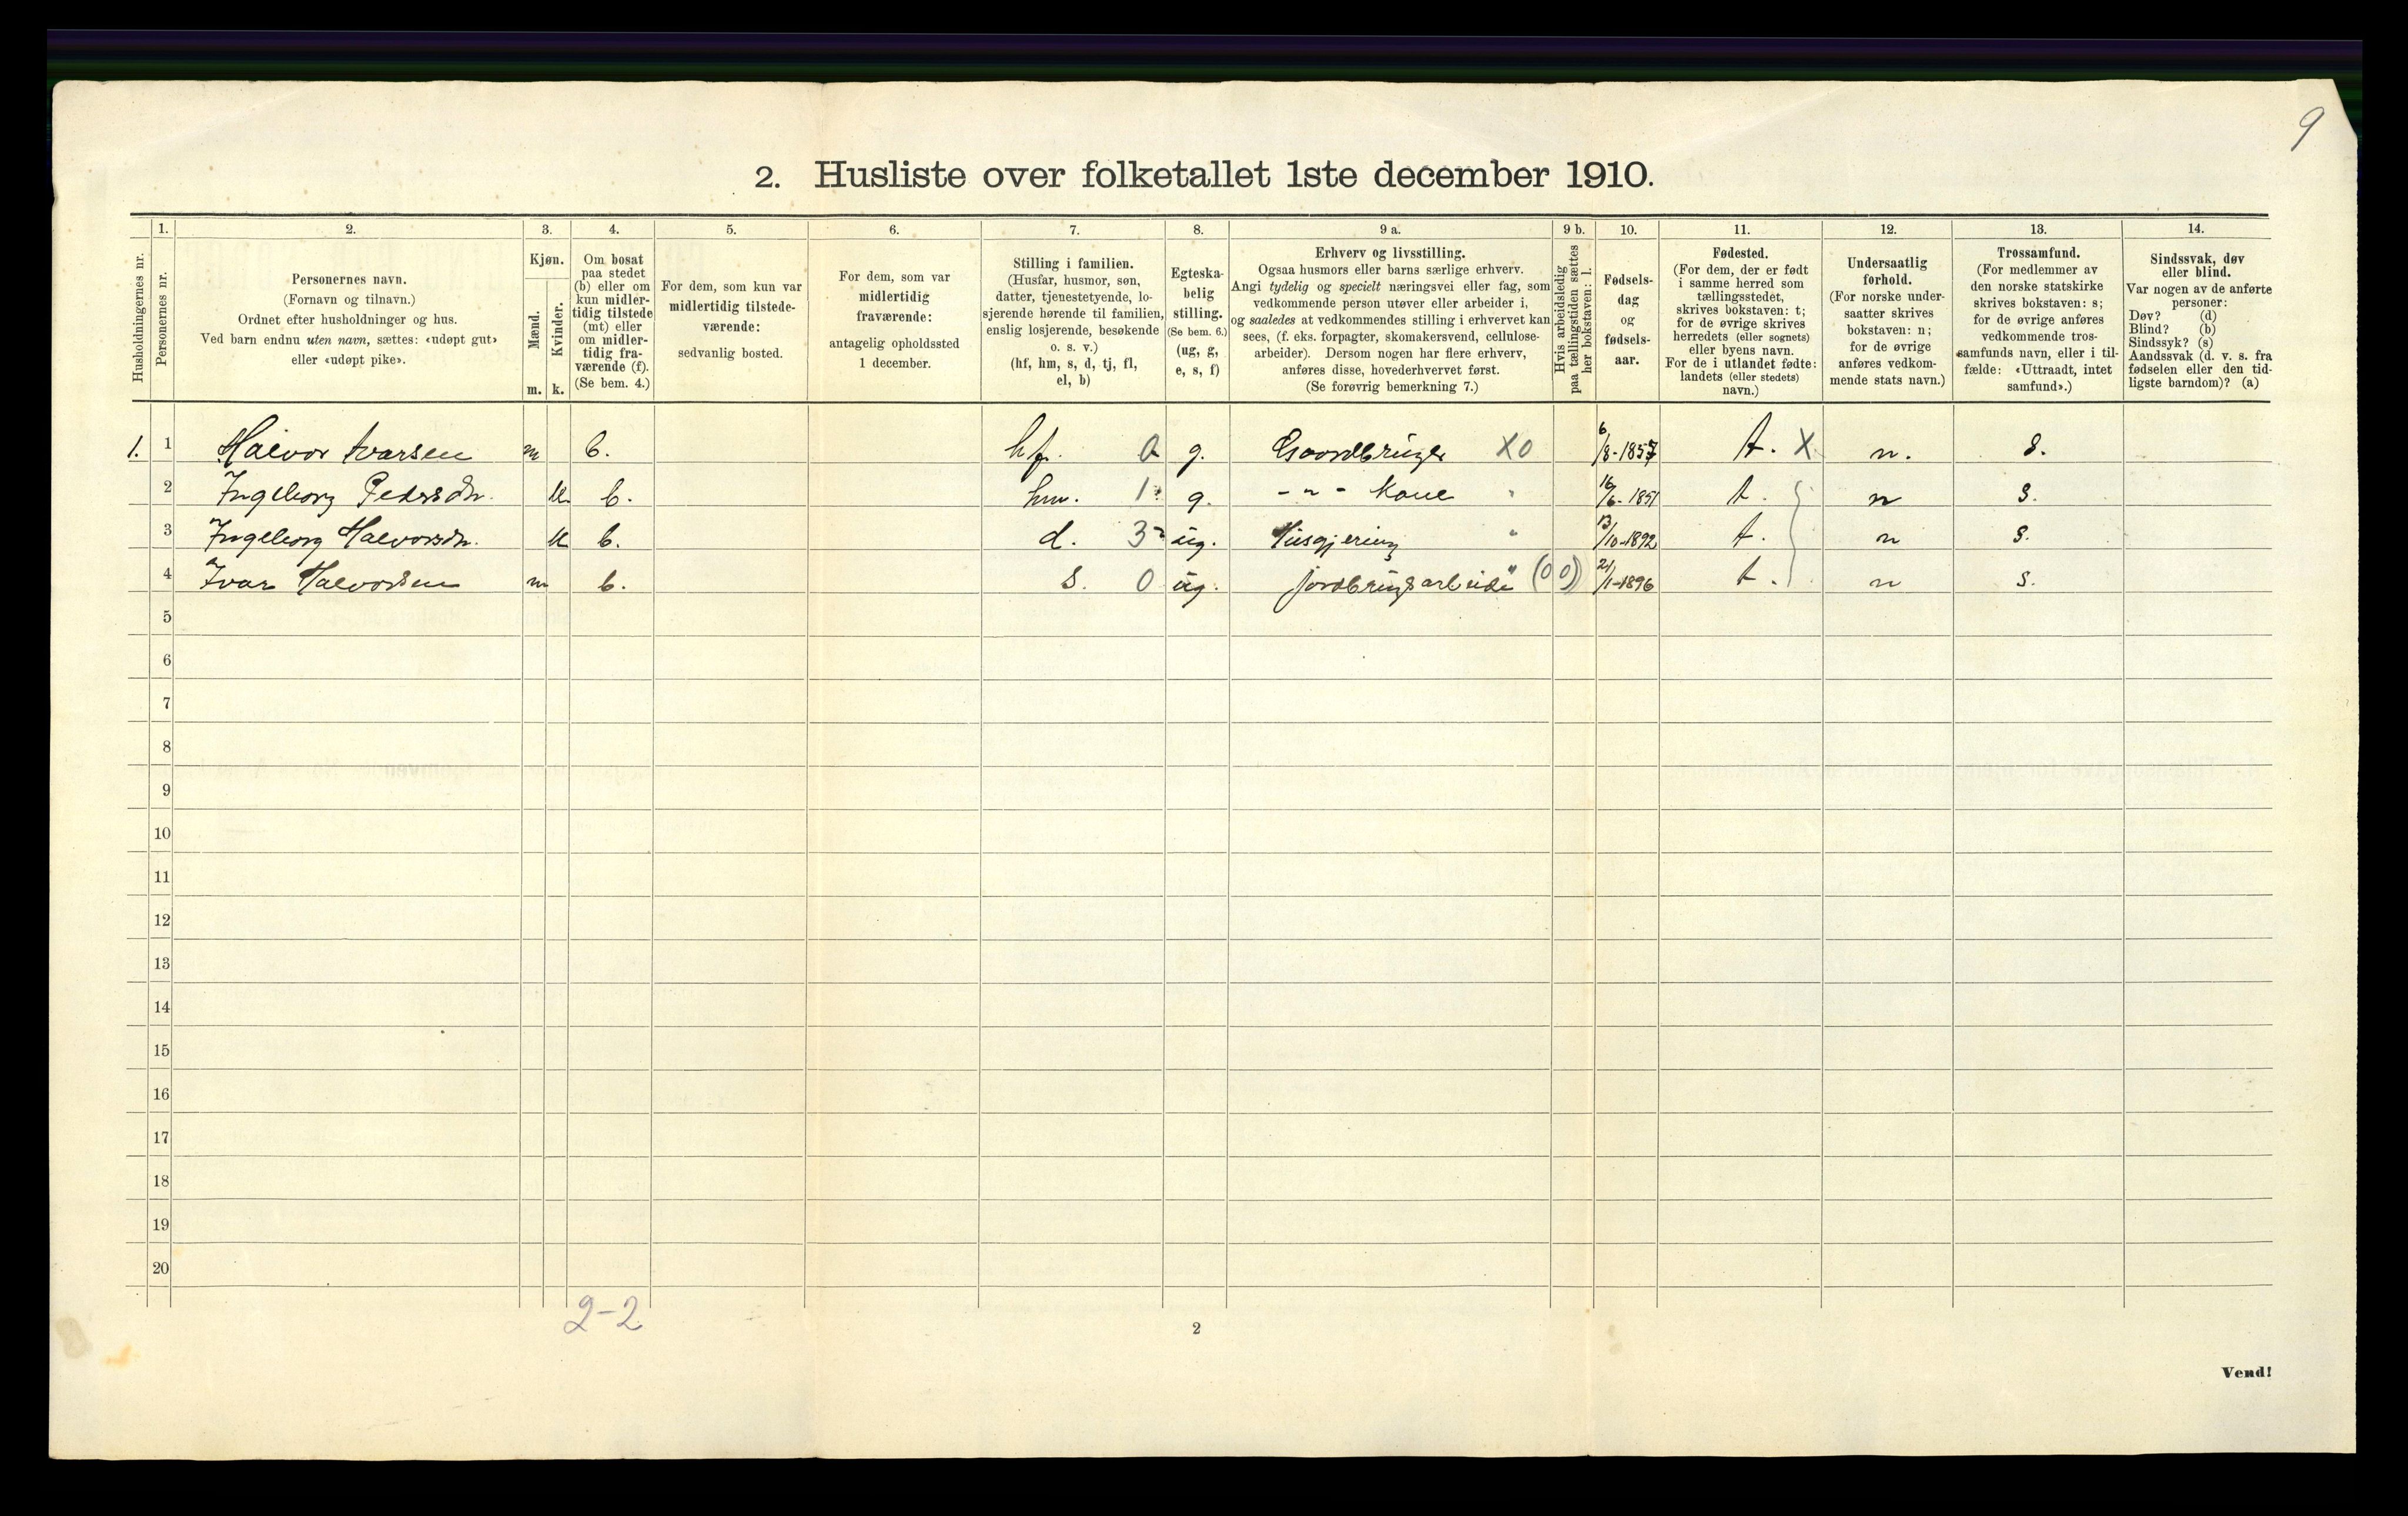 9
2. Husliste over folketallet 1ste december 1910.
1. 2. 3. 4. 5. 6. 7. 8. 9 a. 9 b. 10. 11. 12. 13. 14.
Husholdningernes nr.
Personernes nr.
Personernes navn.
(Fornavn og tilnavn.)
Ordnet efter husholdninger og hus.
Ved barn endnu uten navn, sættes: «udøpt gut»
eller «udøpt pike».
Kjøn.
Mænd.
Kvinder.
m. k.
Om bosat
paa stedet
(b) eller om
kun midler-
tidig tilstede
(mt) eller
om midler-
tidig fra-
værende (f).
(Se bem. 4.)
For dem, som kun var
midlertidig tilstede-
værende:
sedvanlig bosted.
For dem, som var
midlertidig
fraværende:
antagelig opholdssted
1 december.
Stilling i familien.
(Husfar, husmor, søn,
datter, tjenestetyende, lo-
sjerende hørende til familien,
enslig losjerende, besøkende
o. s. v.)
(hf, hm, s, d, tj, fl,
el, b)
Egteska-
belig
stilling.
(Se bem. 6.)
(ug, g,
e, s, f)
Erhverv og livsstilling.
Ogsaa husmors eller barns særlige erhverv.
Angi tydelig og specielt næringsvei eller fag, som
vedkommende person utøver eller arbeider i,
og saaledes at vedkommendes stilling i erhvervet kan
sees, (f. eks. forpagter, skomakersvend, cellulose-
arbeider). Dersom nogen har flere erhverv,
anføres disse, hovederhvervet først.
(Se forøvrig bemerkning 7.)
Hvis arbeidsledig
paa tællingstiden sættes
her bokstaven: l.
Fødsels-
dag
og
fødsels-
aar.
Fødested.
(For dem, der er født
i samme herred som
tællingsstedet,
skrives bokstaven: t;
for de øvrige skrives
herredets (eller sognets)
eller byens navn.
For de i utlandet fødte:
landets (eller stedets)
navn.)
Undersaatlig
forhold.
(For norske under-
saatter skrives
bokstaven: n;
for de øvrige
anføres vedkom-
mende stats navn.)
Trossamfund.
(For medlemmer av
den norske statskirke
skrives bokstaven: s;
for de øvrige anføres
vedkommende tros-
samfunds navn, eller i til-
fælde: «Uttraadt, intet
samfund».)
Sindssvak, døv
eller blind.
Var nogen av de anførte
personer:
Døv? (d)
Blind? (b)
Sindssyk? (s)
Aandssvak (d. v. s. fra
fødselen eller den tid-
ligste barndom)? (a)
1. 1 Halvor Ivarsen m b. hf. 0 g. Gaardbruger X0 6/8-1857 t. X n. s.
2 Ingeborg Pedersdr. k b. hm. 1 g. - " - Kone " 16/6-1851 t. n s.
3 Ingeborg Halvorsdr. k b. d. 3 ug. Husgjerning " 13/10-1892 t. n s.
4 Ivar Halvorsen m b. s. 0 ug. jordbrugsarbeide " (0 0) 21/1-1896 t. n s.
5
6
7
8
9
10
11
12
13
14
15
16
17
18
19
20
2-2
2
Vend!